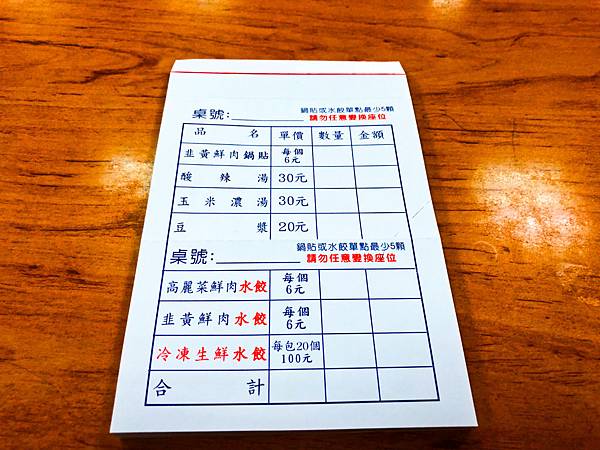 桌號:
鍋貼或水餃單點最少5顆
請勿任意變換座位
品名 單價 數量 金額
韭黃鮮肉鍋貼 每個6元
酸辣湯 30元
玉米濃湯 30元
豆漿 20元
桌號:
鍋貼或水餃單點最少5顆
請勿任意變換座位
高麗菜鮮肉水餃 每個6元
韭黃鮮肉水餃 每個6元
冷凍生鮮水餃 每包20個100元
合計